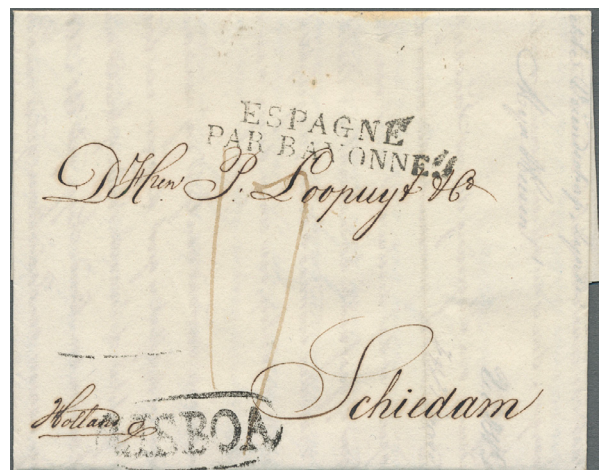 ESPAGNE
PAR BAYONNE
D Hren P. Loopuyt & Co
Schiedam
Holland
LISBOA